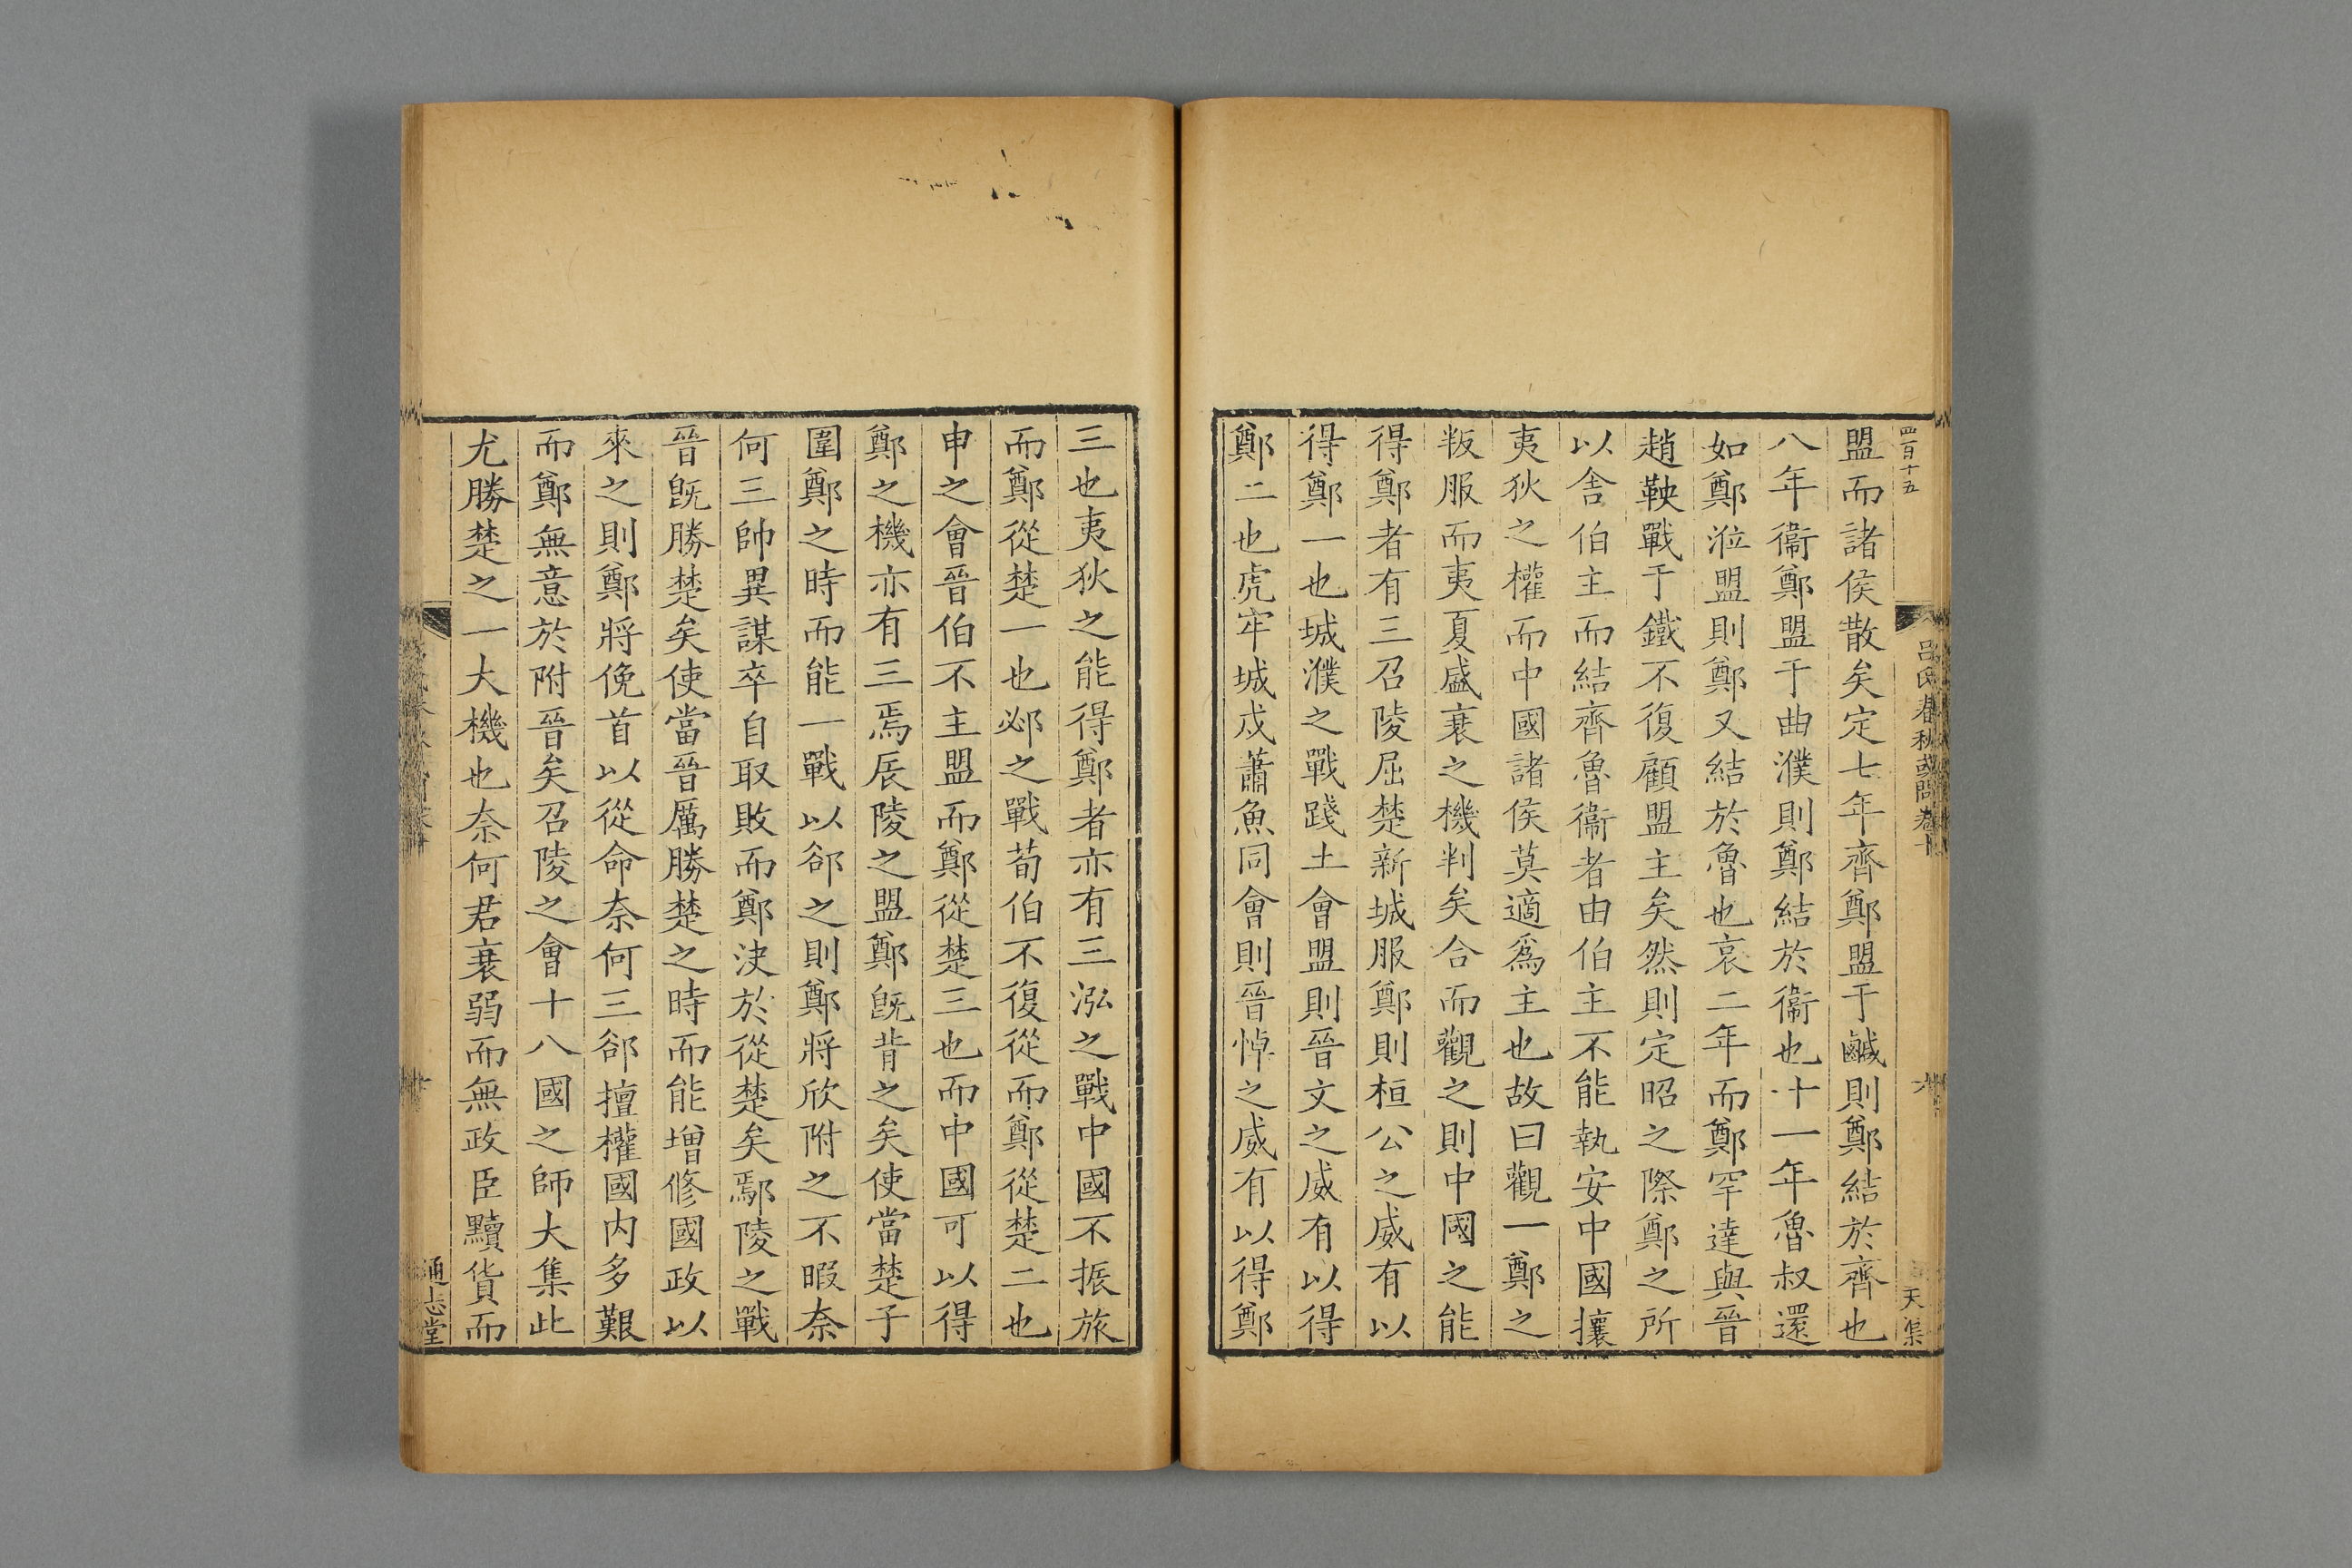 四百十五
呂氏春秋或問卷十
天集
盟而諸侯散矣定七年齊鄭盟于鹹則鄭結於齊也
八年衞鄭盟于曲濮則鄭結於衞也十一年魯叔還
如鄭涖盟則鄭又結於魯也哀二年而鄭罕達與晉
趙鞅戰于鐵不復顧盟主矣然則定昭之際鄭之所
以舍伯主而結齊魯衞者由伯主不能執安中國攘
夷狄之權而中國諸侯莫適爲主也故曰觀一鄭之
叛服而夷夏盛衰之機判矣合而觀之則中國之能
得鄭者有三召陵屈楚新城服鄭則桓公之威有以
得鄭一也城濮之戰踐土會盟則晉文之威有以得
鄭二也虎牢城戍蕭魚同會則晉悼之威有以得鄭
三也夷狄之能得鄭者亦有三泓之戰中國不振旅
而鄭從楚一也邲之戰荀伯不復從而鄭從楚二也
申之會晉伯不主盟而鄭從楚三也而中國可以得
鄭之機亦有三焉辰陵之盟鄭旣背之矣使當楚子
圍鄭之時而能一戰以郤之則鄭將欣附之不暇奈
何三帥異謀卒自取敗而鄭決於從楚矣鄢陵之戰
晉旣勝楚矣使當晉厲勝楚之時而能增修國政以
來之則鄭將俛首以從命奈何三郤擅權國内多艱
而鄭無意於附晉矣召陵之會十八國之師大集此
尤勝楚之一大機也奈何君衰弱而無政臣黷貨而
通志堂